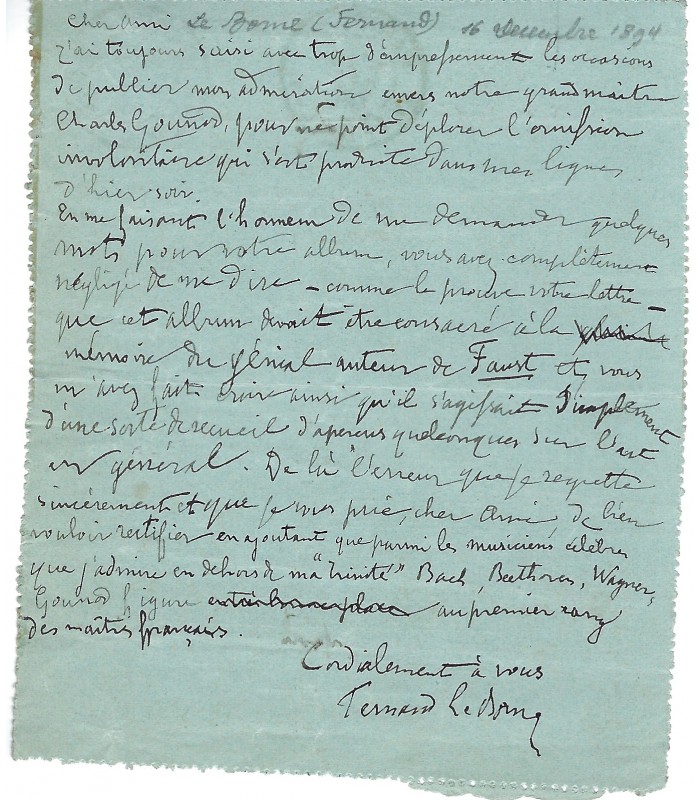 Cher Ami Le Borne (Fernand) 16 Decembre 1894
J'ai toujours saisi avec trop d'empressement les occasions
de publier mon admiration envers notre grand maître
Charles Gounod, pour ne point déplorer l'omission
involontaire qui s'est produite dans mes lignes
d'hier soir.
En me faisant l'honneur de me demander quelques
mots pour votre album, vous avez complètement
négligé de me dire – comme le prouve votre lettre –
que cet album devait être consacré à la
mémoire du génial auteur de Faust et vous
m'avez fait croire ainsi qu'il s'agissait simplement
d'une sorte de recueil d'aperçus quelconques sur l'art
en général. De là l'erreur que je regrette
sincèrement et que je vous prie, cher Ami, de bien
vouloir rectifier en ajoutant que parmi les musiciens célèbres
que j'admire en dehors de ma "trinité" Bach, Beethoven, Wagner,
Gounod figure au premier rang
des maîtres français.
Cordialement à vous
Fernand Le Borne